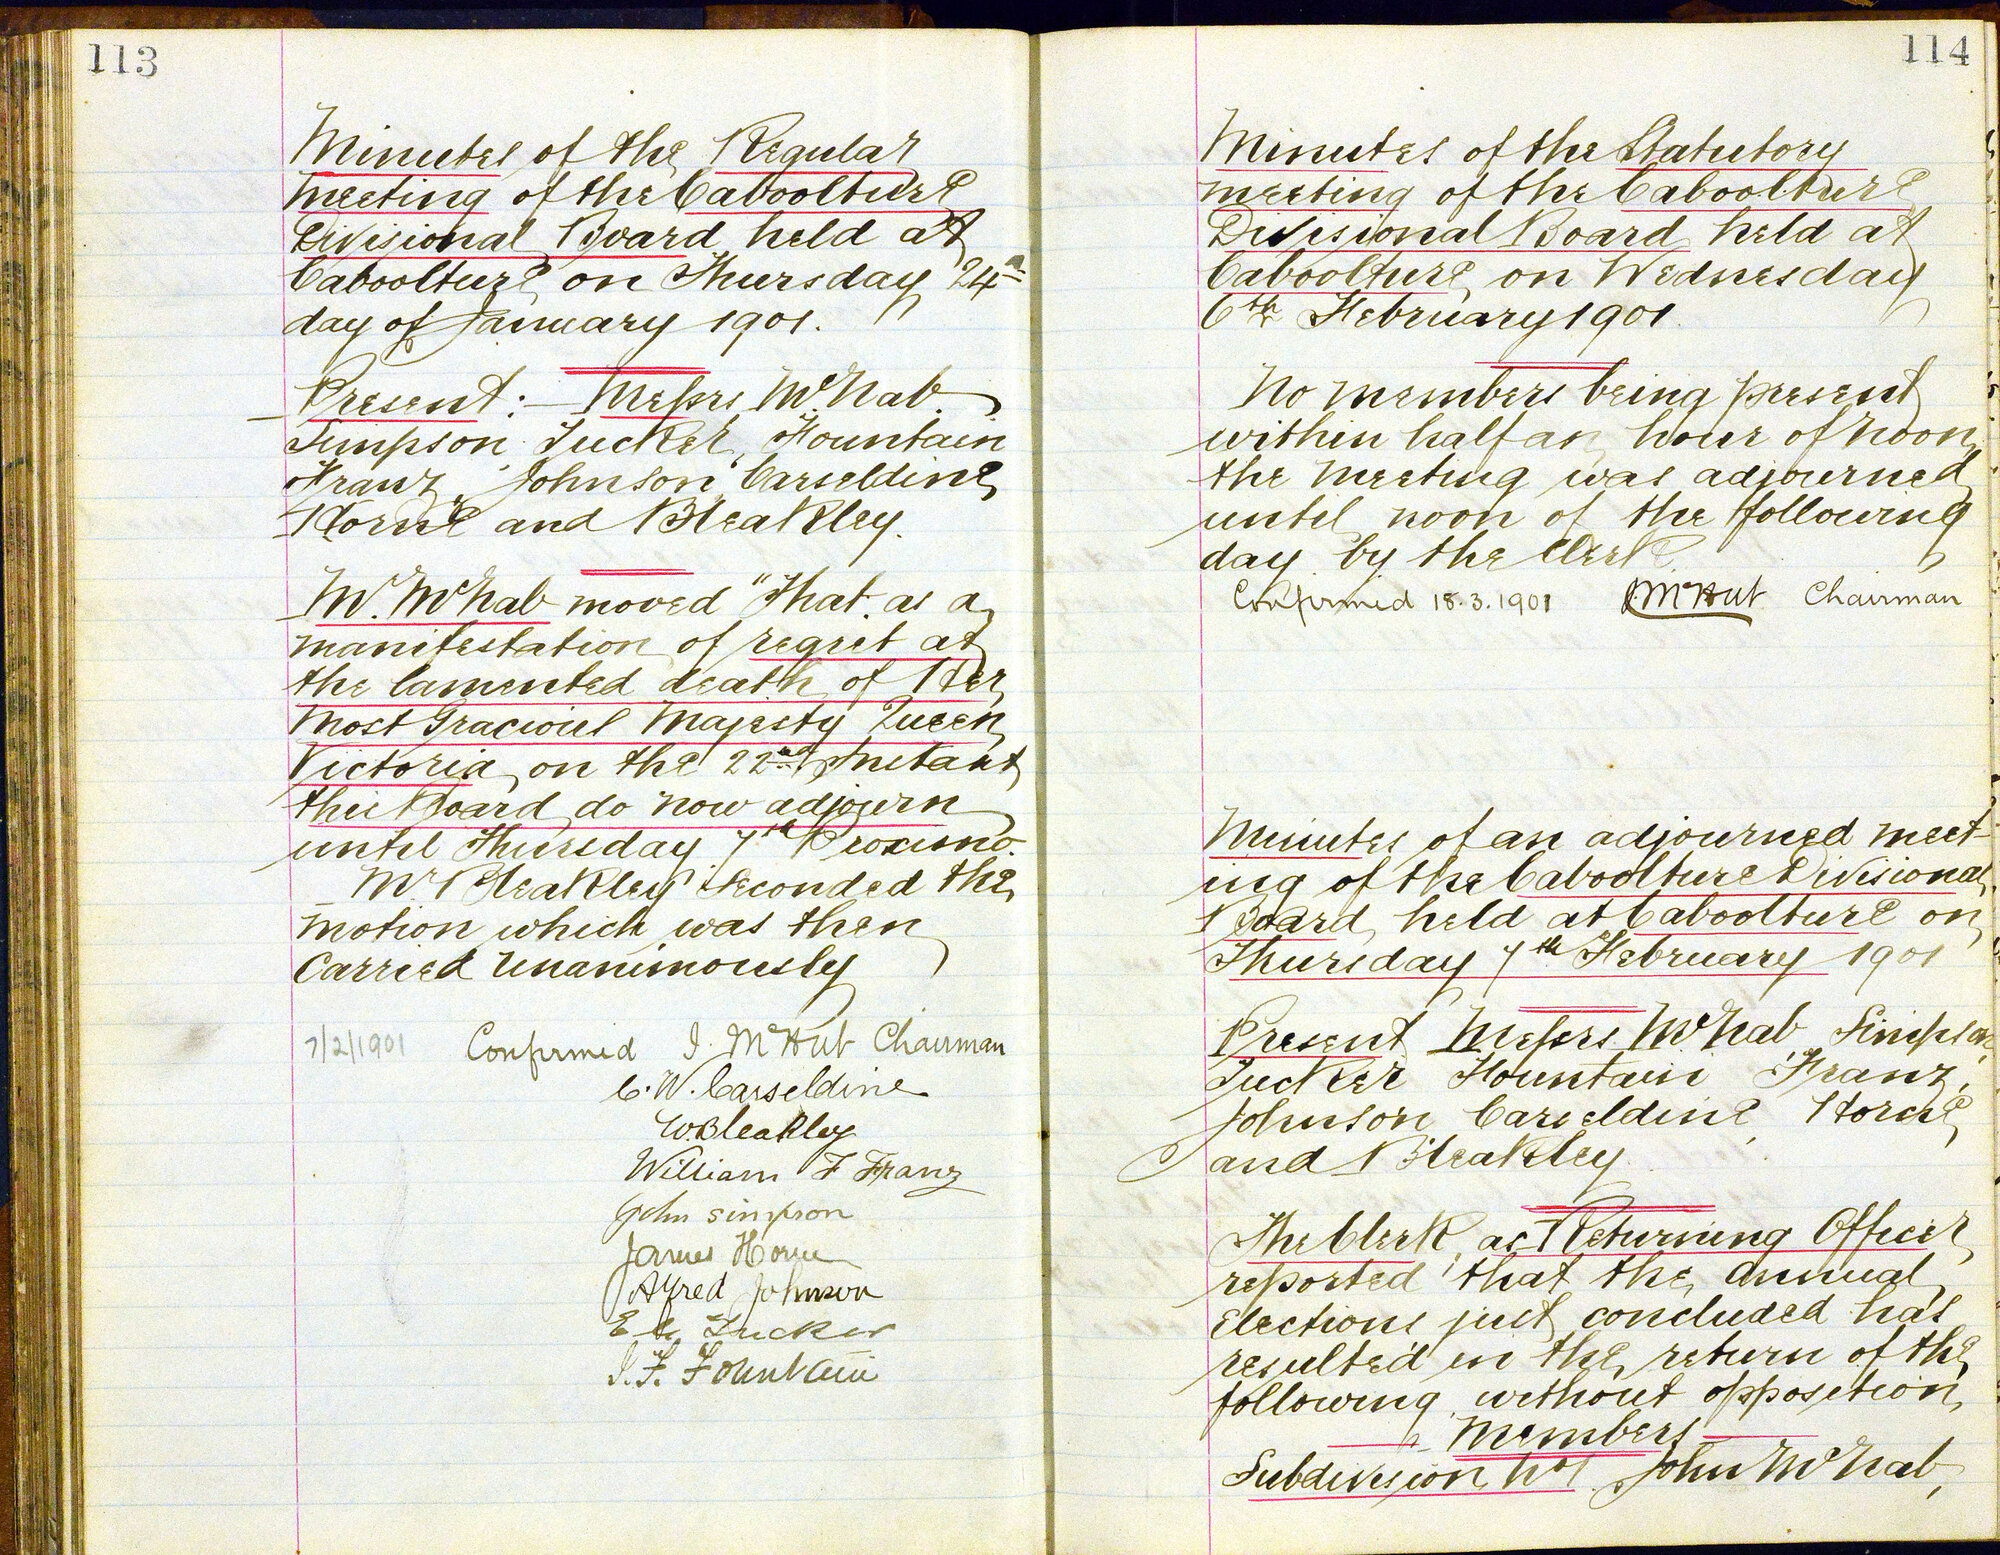 113
Minutes of the Regular
meeting of the Caboolture
Divisional Board held at
Caboolture on Thursday 24th
day of January 1901.
Present:— Messrs McNab
Simpson Tucker, Fountain
Franz, Johnson, Carseldine,
Horne and Bleakley.
Mr. McNab moved "That as a
manifestation of regret at
the lamented death of Her
Most Gracious Majesty Queen
Victoria, on the 22nd Instant
this Board do now adjourn
until Thursday 7th Proximo.
Mr Bleakley seconded the
motion which was then
Carried Unanimously
7/2/1901 Confirmed J. McNab Chairman
C. W. Carseldine
W. Bleakley
William F Franz
John Simpson
James Horne
Alfred Johnson
Tucker
J. F. Fountain
114
Minutes of the Statutory
meeting of the Caboolture
Divisional Board held at
Caboolture, on Wednesday
6th February 1901.
No members being present
within half an hour of noon,
the meeting was adjourned
until noon of the following
day by the Clerk
Confirmed 18.3.1901 J. McNab Chairman
Minutes of an adjourned meet-
ing of the Caboolture Divisional
Board, held at Caboolture on
Thursday 7th February 1901
Present Messrs McNab, Simpson,
Tucker Fountain, Franz,
Johnson Carseldine, Horne,
and Bleakley.
The Clerk, as Returning Officer
reported that the annual
elections just concluded has
resulted in the return of the
following, without opposition,
Members
Subdivision No 1 John McNab,